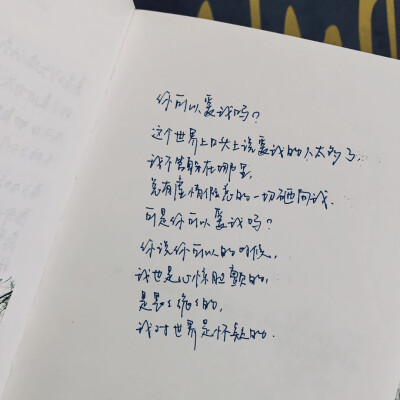 你可以爱我吗？
这个世界上口头上说爱我的人太多了，
我不管躲在哪里，
总有虚情假意的一切砸向我.
可是你可以爱我吗？
你说你可以的时候，
我也是心惊胆颤的，
是畏畏缩缩的，
我对世界是怀疑的.